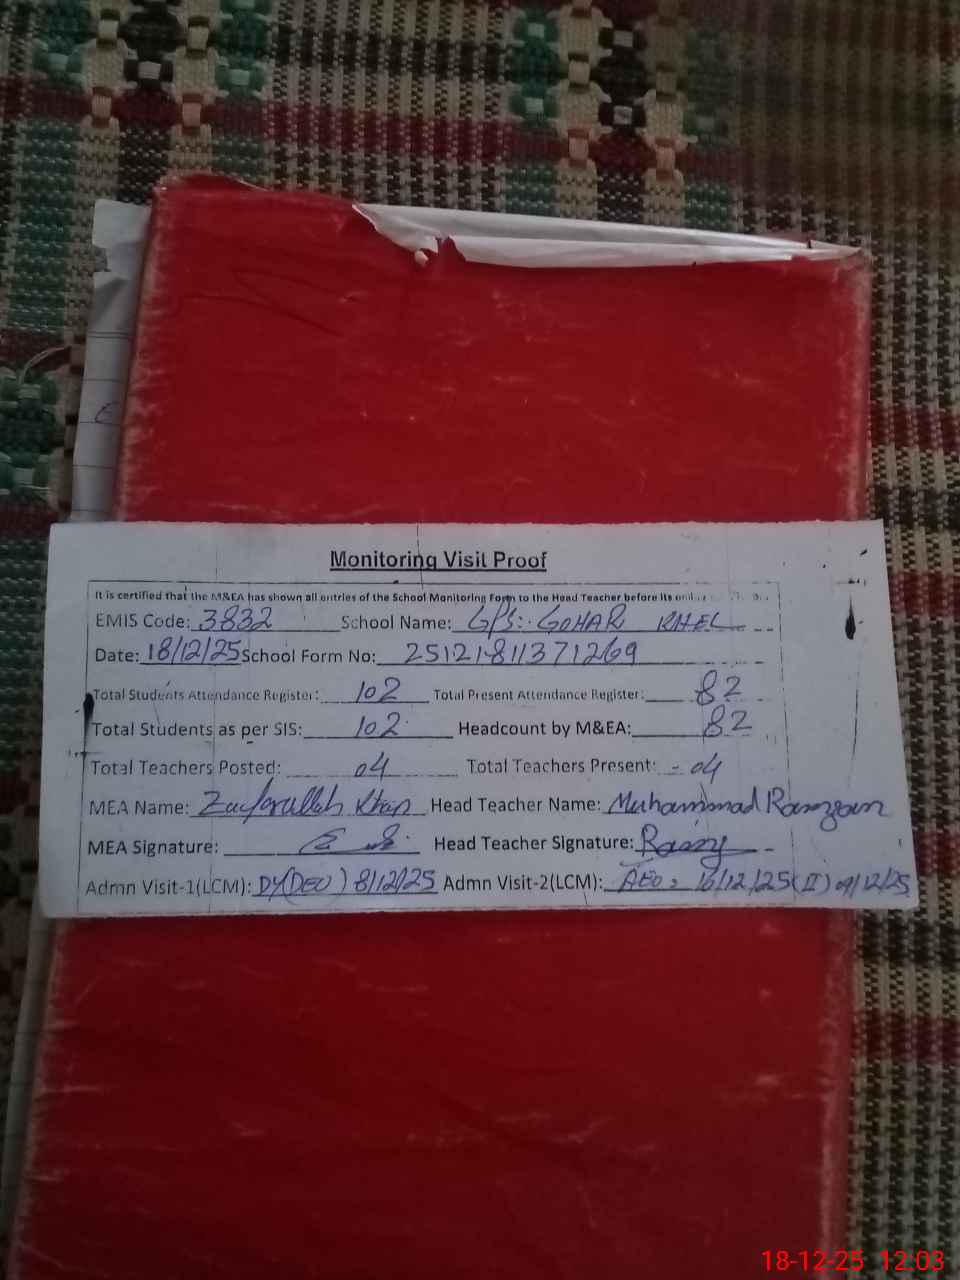 Monitoring Visit Proof
It is certified that the M&EA has shown all entries of the School Monitoring Form to the Head Teacher before its
EMIS Code: 3832 School Name: GPS: GOHAR KHEL
Date: 18/12/25 School Form No:
Total Students Attendance Register: 102 Total Present Attendance Register: 82
Total Students as per SIS: 102 Headcount by M&EA: 82
Total Teachers Posted: 04 Total Teachers Present: 04
MEA Name: Zafarullah Khan Head Teacher Name: Muhammad Ramzan
MEA Signature: Head Teacher Signature:
Admn Visit-1(LCM): DY(DEO) 8/12/25 Admn Visit-2(LCM): AEO: /12/25(II) 09/12/25
18-12-25 12:03